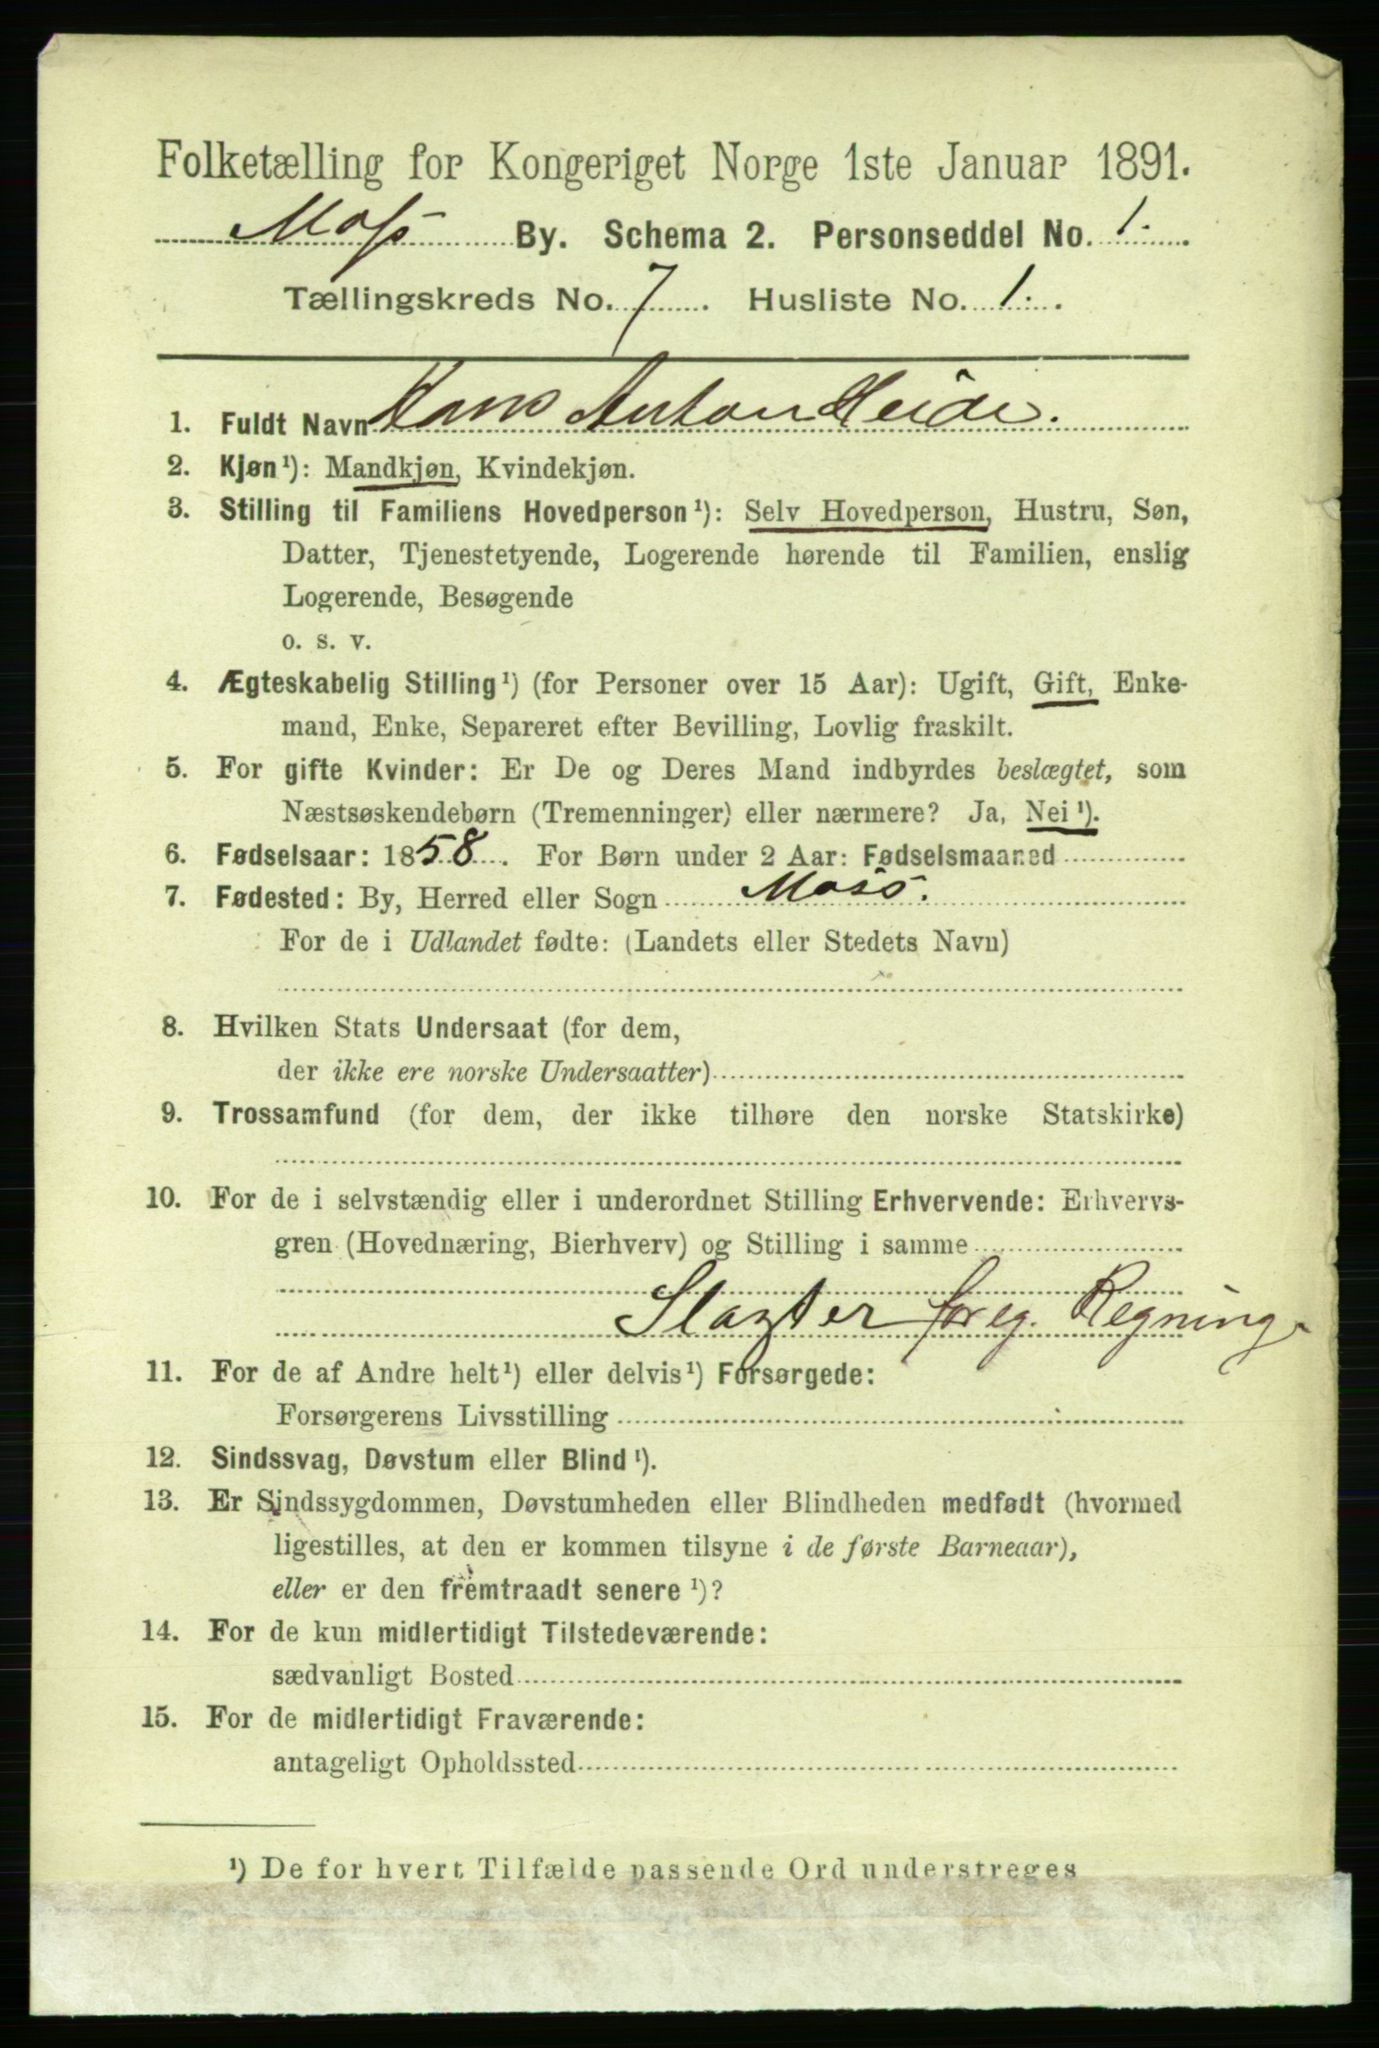 Folketælling for Kongeriget Norge 1ste Januar 1891.
Moss By. Schema 2. Personseddel No. 1.
Tællingskreds No. 7. Husliste No. 1.
1. Fuldt Navn Hans Anton Heide.
2. Kjøn¹): Mandkjøn, Kvindekjøn.
3. Stilling til Familiens Hovedperson¹): Selv Hovedperson, Hustru, Søn,
Datter, Tjenestetyende, Logerende hørende til Familien, enslig
Logerende, Besøgende
o. s. v.
4. Ægteskabelig Stilling¹) (for Personer over 15 Aar): Ugift, Gift, Enke-
mand, Enke, Separeret efter Bevilling, Lovlig fraskilt.
5. For gifte Kvinder: Er De og Deres Mand indbyrdes beslægtet, som
Næstsøskendebørn (Tremenninger) eller nærmere? Ja, Nei¹).
6. Fødselsaar: 1858. For Børn under 2 Aar: Fødselsmaaned
7. Fødested: By, Herred eller Sogn Moss.
For de i Udlandet fødte: (Landets eller Stedets Navn)
8. Hvilken Stats Undersaat (for dem,
der ikke ere norske Undersaatter)
9. Trossamfund (for dem, der ikke tilhøre den norske Statskirke)
10. For de i selvstændig eller i underordnet Stilling Erhvervende: Erhvervs-
gren (Hovednæring, Bierhverv) og Stilling i samme
Slagter for eg. Regning.
11. For de af Andre helt¹) eller delvis¹) Forsørgede:
Forsørgerens Livsstilling
12. Sindssvag, Døvstum eller Blind¹).
13. Er Sindssygdommen, Døvstumheden eller Blindheden medfødt (hvormed
ligestilles, at den er kommen tilsyne i de første Barneaar),
eller er den fremtraadt senere¹)?
14. For de kun midlertidigt Tilstedeværende:
sædvanligt Bosted
15. For de midlertidigt Fraværende:
antageligt Opholdssted
¹) De for hvert Tilfælde passende Ord understreges